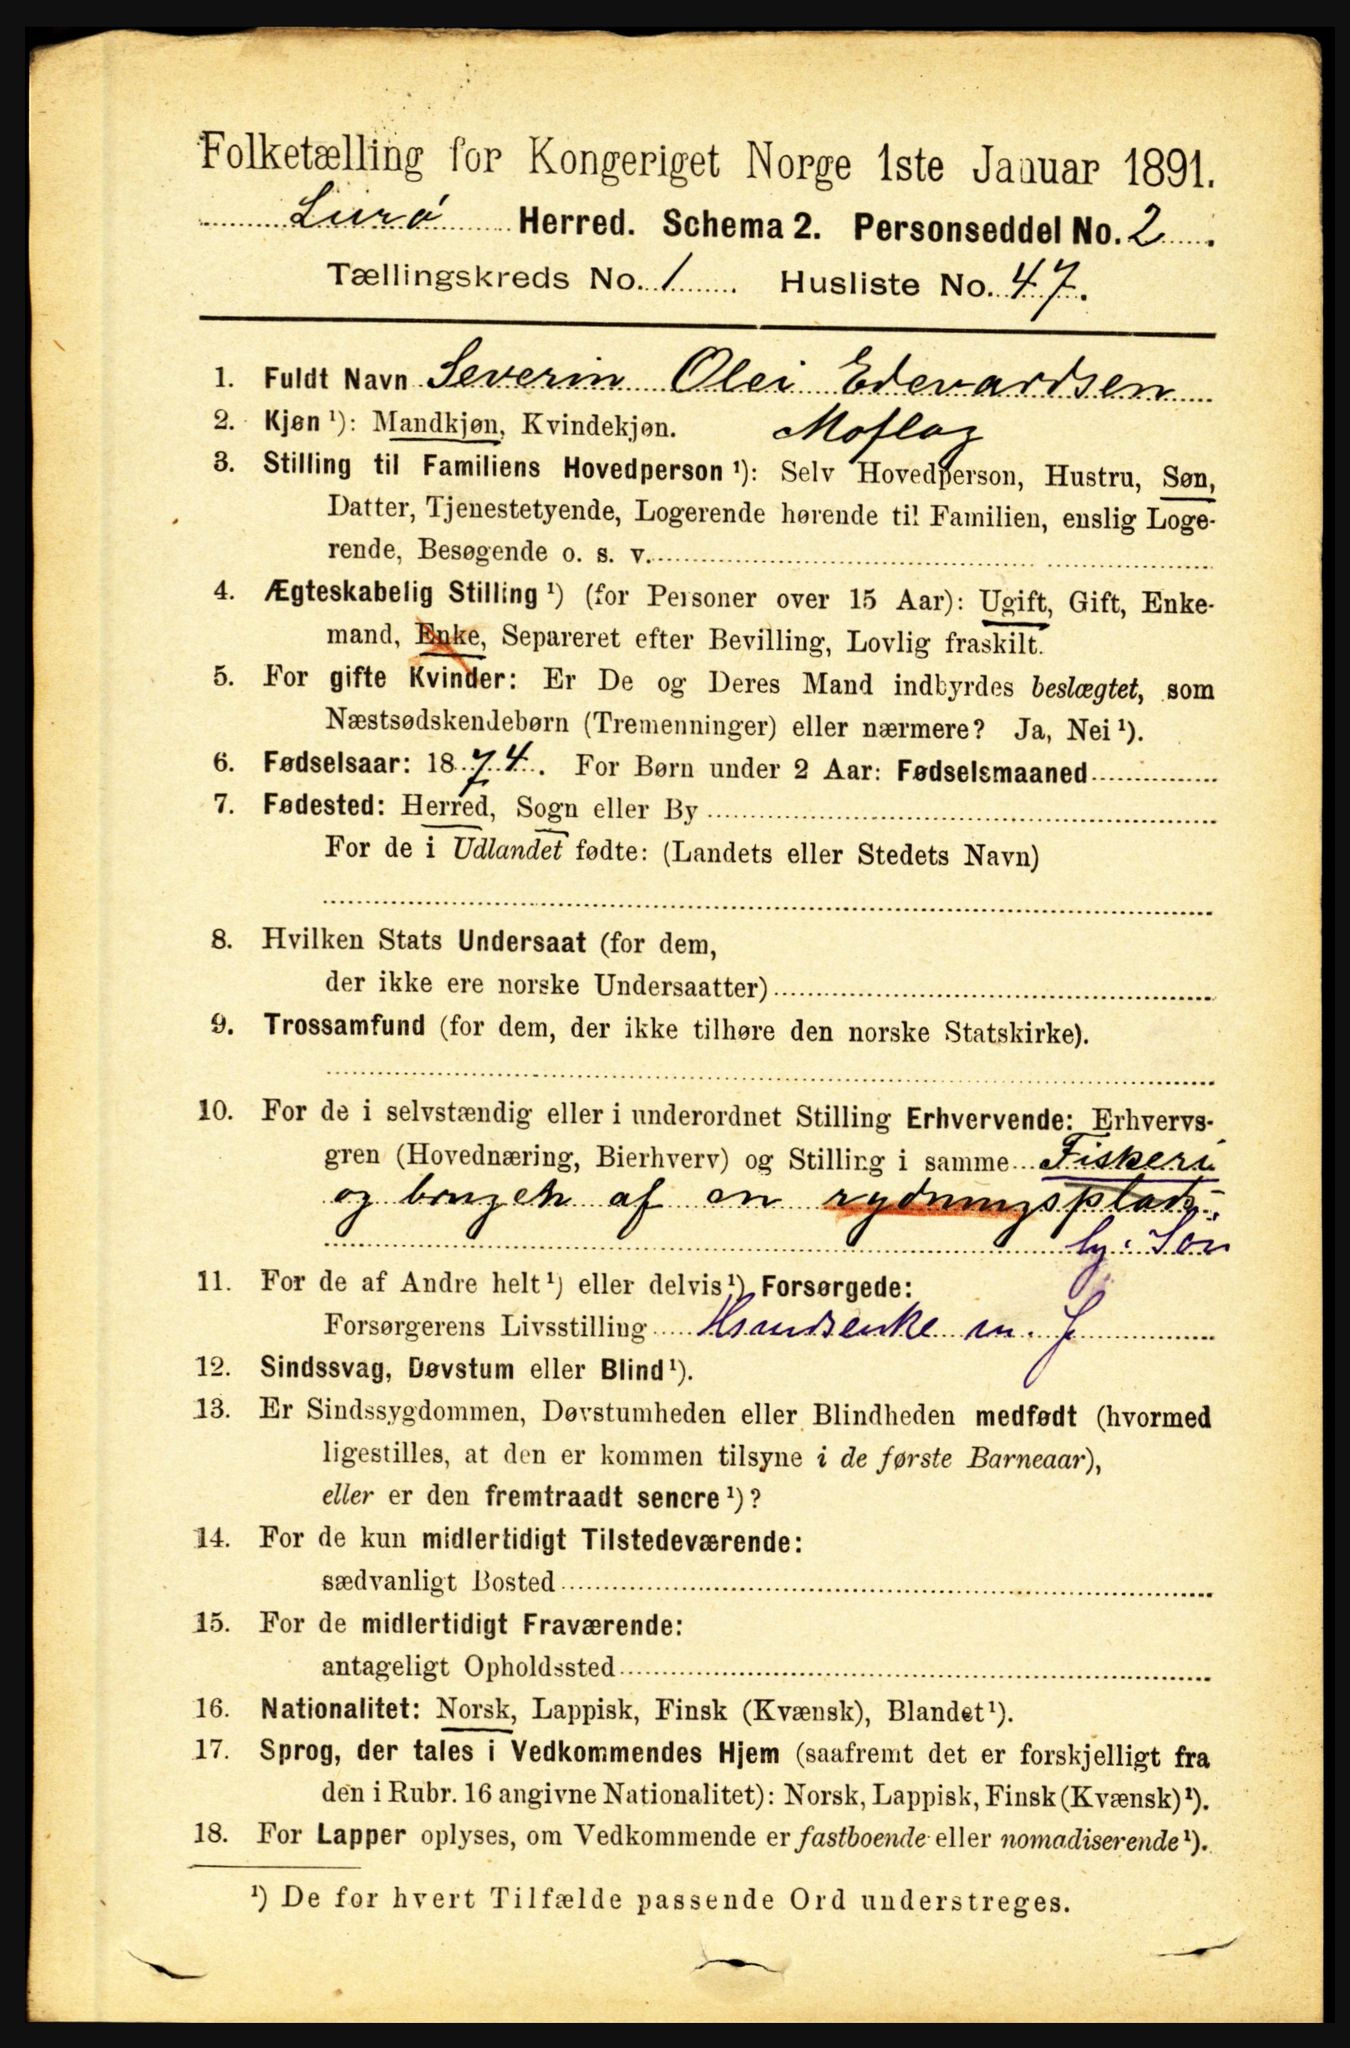 Folketælling for Kongeriget Norge 1ste Januar 1891.
Lurø Herred. Schema 2. Personseddel No. 2.
Tællingskreds No. 1. Husliste No. 47.
1. Fuldt Navn Severin Olei Edevardsen
2. Kjøn ¹): Mandkjøn, Kvindekjøn. Moflag
3. Stilling til Familiens Hovedperson ¹): Selv Hovedperson, Hustru, Søn,
Datter, Tjenestetyende, Logerende hørende til Familien, enslig Loge-
rende, Besøgende o. s. v.
4. Ægteskabelig Stilling ¹) (for Personer over 15 Aar): Ugift, Gift, Enke-
mand, Enke, Separeret efter Bevilling, Lovlig fraskilt.
5. For gifte Kvinder: Er De og Deres Mand indbyrdes beslægtet, som
Næstsødskendebørn (Tremenninger) eller nærmere? Ja, Nei ¹).
6. Fødselsaar: 1874. For Børn under 2 Aar: Fødselsmaaned
7. Fødested: Herred, Sogn eller By
For de i Udlandet fødte: (Landets eller Stedets Navn)
8. Hvilken Stats Undersaat (for dem,
der ikke ere norske Undersaatter)
9. Trossamfund (for dem, der ikke tilhøre den norske Statskirke).
10. For de i selvstændig eller i underordnet Stilling Erhvervende: Erhvervs-
gren (Hovednæring, Bierhverv) og Stilling i samme Fiskeri
og brugen af en rydningsplads.
hj. Søn
11. For de af Andre helt ¹) eller delvis ¹) Forsørgede:
Forsørgerens Livsstilling m. J
12. Sindssvag, Døvstum eller Blind ¹).
13. Er Sindssygdommen, Døvstumheden eller Blindheden medfødt (hvormed
ligestilles, at den er kommen tilsyne i de første Barneaar),
eller er den fremtraadt senere ¹)?
14. For de kun midlertidigt Tilstedeværende:
sædvanligt Bosted
15. For de midlertidigt Fraværende:
antageligt Opholdssted
16. Nationalitet: Norsk, Lappisk, Finsk (Kvænsk), Blandet ¹).
17. Sprog, der tales i Vedkommendes Hjem (saafremt det er forskjelligt fra
den i Rubr. 16 angivne Nationalitet): Norsk, Lappisk, Finsk (Kvænsk) ¹).
18. For Lapper oplyses, om Vedkommende er fastboende eller nomadiserende ¹).
¹) De for hvert Tilfælde passende Ord understreges.